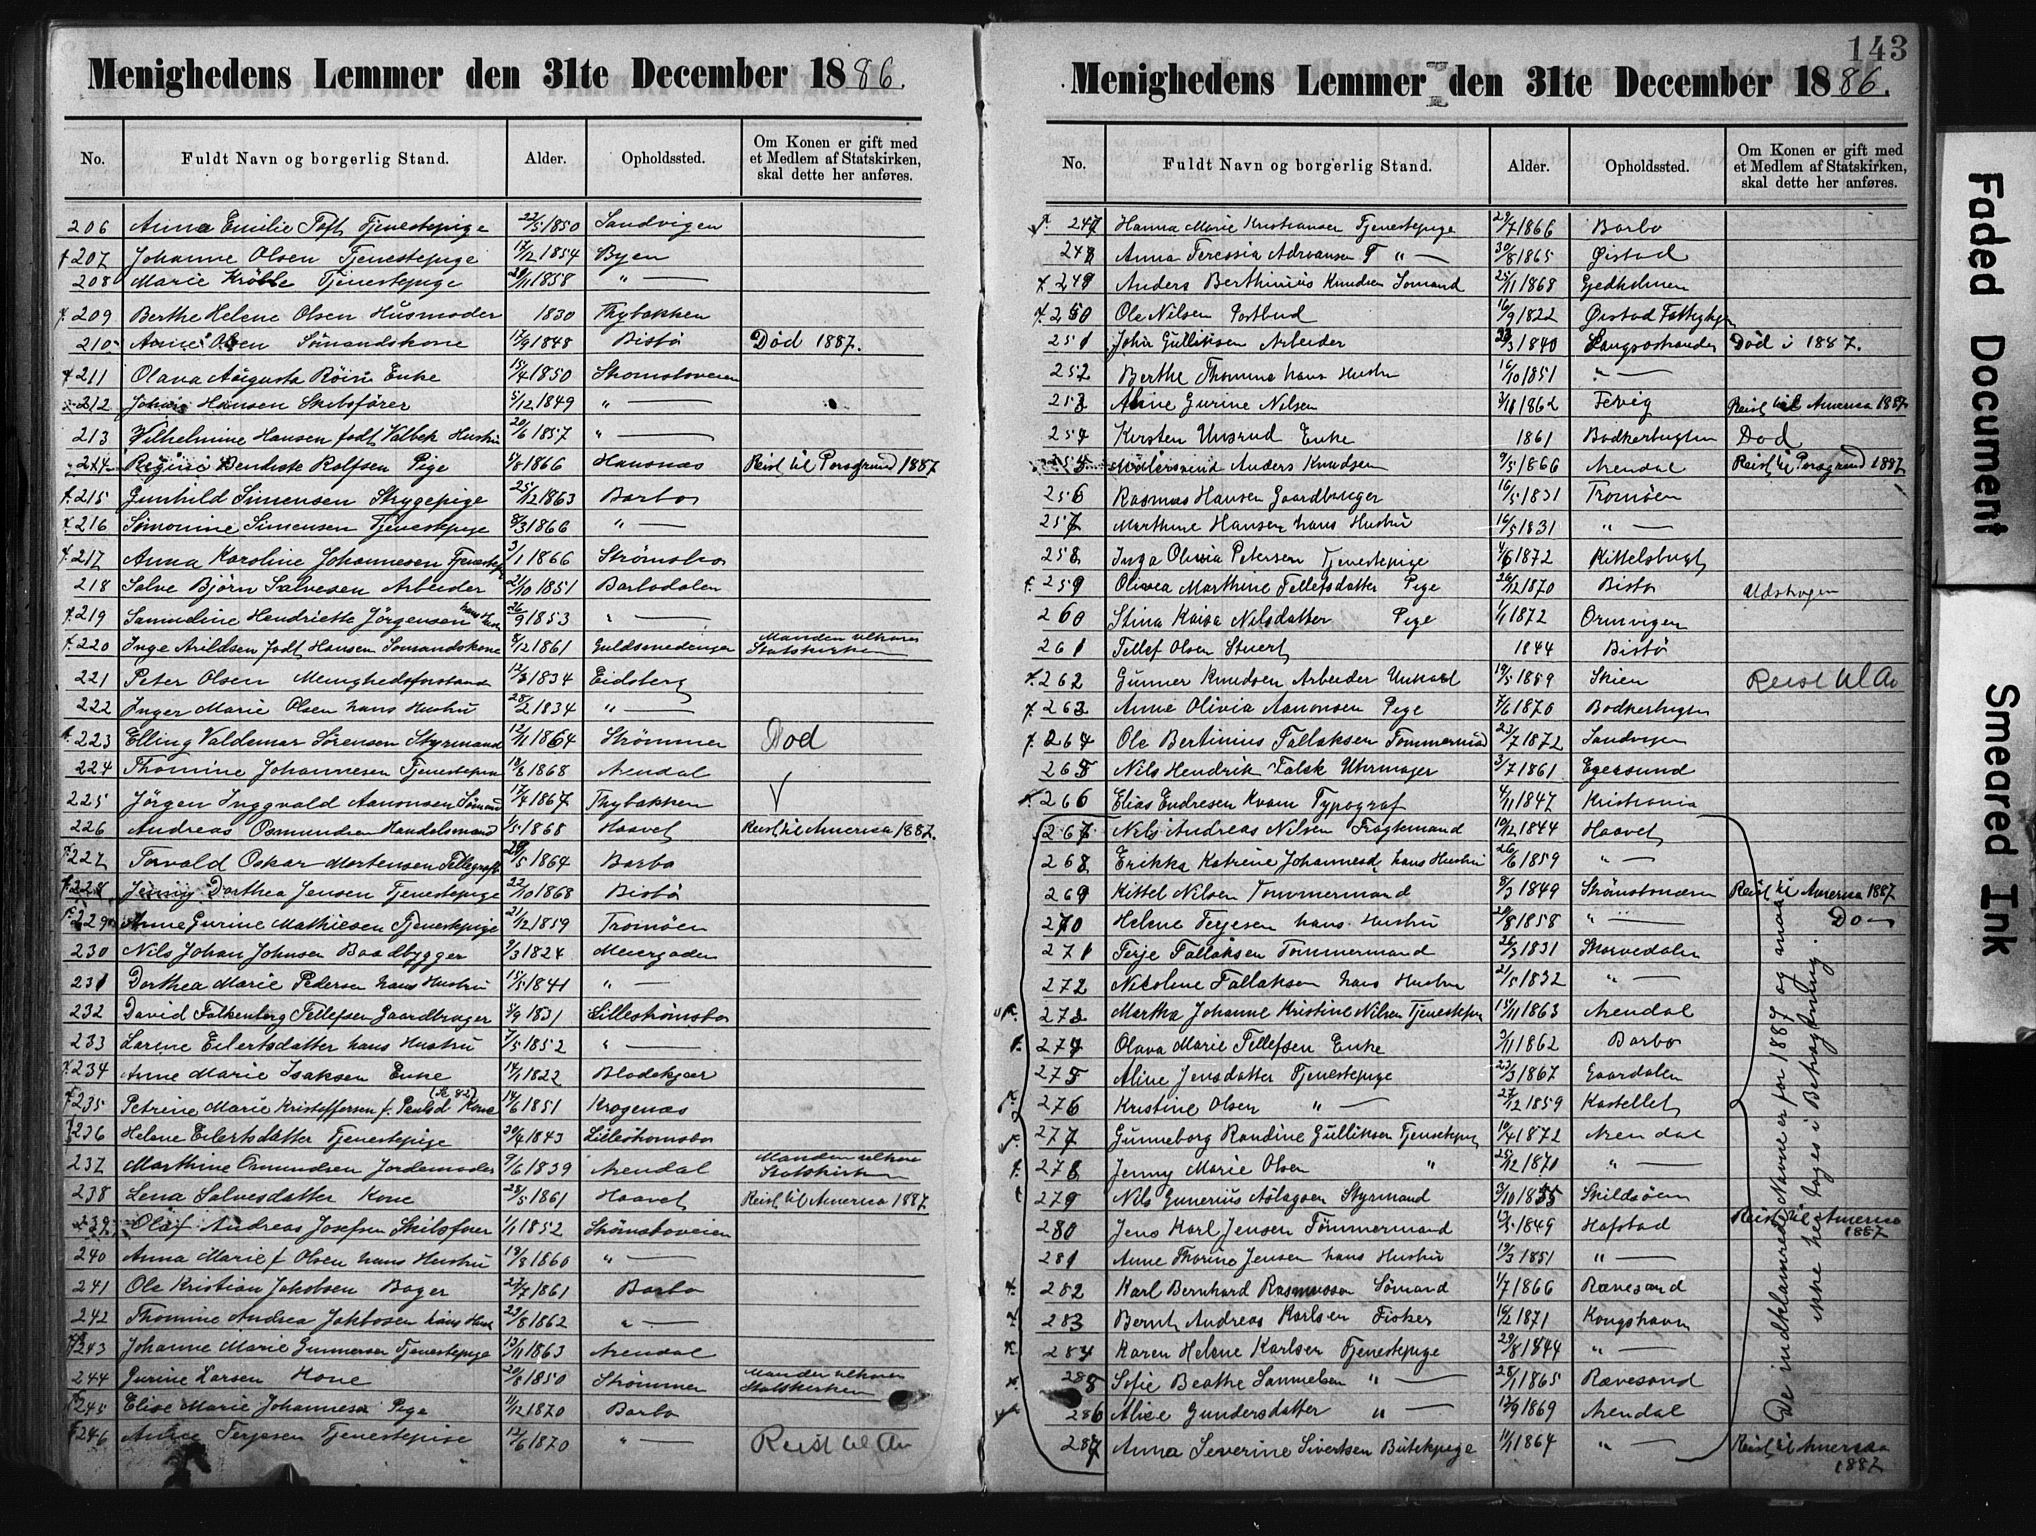 143
Menighedens Lemmer den 31te December 1886.
No. Fuldt Navn og borgerlig Stand. Alder. Opholdssted. Om Konen er gift med et Medlem af Statskirken, skal dette her anføres.
206 Anna Emilie Toft Tjenestepige 22/5 1850 Sandvigen
207 Johanne Olsen Tjenestepige 17/12 1854 Byen
208 Marie Krøble Tjenestepige 29/11 1858 " —
209 Berthe Helene Olsen Husmoder 1830 Thybakken
210 Anne Olsen Sömandskone 17/9 1848 Bisbö Död 1887.
211 Olava Augusta Röin Enke 15/4 1850 Stromsboveien
212 Johan Hansen Skibsförer 5/12 1849 " —
213 Wilhelmine Hansen fodt Valbek Hustru 20/6 1857 " —
214 Regine Bendiste Rolfsen Pige 1/8 1866 Hansnæs Reist til Porsgrund 1887
215 Gunhild Simensen Strygepige 25/12 1863 Barbo
216 Simonine Simensen Tjenestepige 8/3 1866 " —
217 Anna Karoline Johannesen Tjenestepige 3/1 1866 Strömsbo
218 Salve Björn Salvesen Arbeider 21/10 1851 Barbodalen
219 Samueline Hendriette Jörgensen hans Hust 26/9 1853 " —
220 Inge Arildsen fodt Hansen Sömandskone 8/12 1861 Guldsmedenger Manden tilhører Statskirken
221 Peter Olsen Menighedsforstander 12/3 1834 Eidsberg
222 Inger Marie Olsen hans Hustru 28/2 1834 " —
223 Elling Valdemar Sörensen Styrmand 12/11 1864 Strömmen Död
224 Thomine Johannesen Tjenestepige 19/8 1868 Arendal
225 Jörgen Inggvald Aanonsen Sömand 17/4 1867 Thybakken V
226 Andreas Osmundsen Handelsmand 1/5 1868 Haavet Reist til America 1887.
227 Torvald Oskar Mortensen Tellegrafist 28/5 1864 Barbo
228 Jenny Dorthea Jensen Tjenestepige 22/10 1868 Bisbö
229 Anne Gurine Mathiesen Tjenestepige 21/12 1859 Tromöen
230 Nils Johan Johnsen Baadbygger 9/3 1824 Meiergaden
231 Dorthea Marie Pedersen hans Hustru 15/5 1841 " —
232 David Falkenberg Tellefsen Gaardbruger 5/9 1831 Lilleströmsbo
233 Larine Eilertsdatter hans Hustru 7/5 1852 " —
234 Anne Marie Isaksen Enke 14/1 1822 Blodekjær
235 Petrine Marie Kristoffersen f. Paulsd Kone 14/6 1851 Krogenæs
236 Helene Eilertsdatter Tjenestepige 20/4 1843 Lilleströmsbo
237 Marthine Osmundsen Jordemoder 9/6 1839 Arendal Manden tilhører Statskirken
238 Lena Salvesdatter Kone 28/5 1861 Haavet Reist til America 1887
239 Olaf Andreas Josefsen Skibsförer 1/1 1852 Strömsboveien
240 Anna Marie f Olsen hans Hustru 19/8 1860 " —
241 Ole Kristian Jakobsen Bager 27/7 1861 Barbo
242 Thomine Andrea Jakobsen hans Hust 23/8 1862 " —
243 Johanne Marie Gunnersen Tjenestepige 13/11 1863 Arendal
244 Gurine Larsen Kone 20/8 1850 Strömmen Manden tilhører Statskirken
245 Elise Marie Johannesen Pige 11/12 1870 Barbo
246 Anne Terjesen Tjenestepige 12/6 1870 " — Reist til Am
Menighedens Lemmer den 31te December 1886.
No. Fuldt Navn og borgerlig Stand. Alder. Opholdssted. Om Konen er gift med et Medlem af Statskirken, skal dette her anføres.
247 Hanna Marie Kristiansen Tjenestepige 29/7 1866 Barbo
248 Anna Teressia Adriansen T " — 30/8 1865 Øistad
249 Anders Berthinius Knudsen Sömand 25/11 1868 Gjedholmen
250 Ole Nilsen Postbud 16/9 1822 Øistad Fattighjem
251 John Gulliksen Arbeider 1840 Langsostranden Död i 1887.
252 Berthe Thomine hans Hustru 16/10 1851 " —
253 Aline Gurine Nilsen 1862 Fevig Reist til America 1887
254 Kirsten Unsrud Enke 1861 Bodkerbugten Dod
255 Anders Knudsen 9/5 1866 Arendal Reist til Porsgrund 1887
256 Rasmus Hansen Gaardbruger 16/5 1831 Tromöen
257 Marthine Hansen hans Hustru 16/5 1831 " —
258 Inga Olivia Petersen Tjenestepige 4/6 1872 Kittelsbugt
259 Olivea Marthine Tellefsdatter Pige 26/12 1870 Bisbo Udstrogen
260 Stina Kaisa Nilsdatter Pige 1/1 1872 Ormvigen
261 Tellef Olsen Stuert 1844 Bisbö
262 Gunner Knudsen Arbeider Unkarl 19/5 1859 Skien Reist til Am
263 Anne Olivia Aanonsen Pige 7/6 1870 Bodkerbugten
264 Ole Bertinius Fallaksen Tømmermand 23/7 1872 Sandvigen
265 Nils Hendrik Falck Uhrmager 3/7 1861 Egersund
266 Elias Endresen Kvam Typograf 4/11 1847 Kristiania
267 Nils Andreas Nilsen Fragtemand 19/12 1844 Haavet
268 Erikka Katrine Johannesd hans Hustru 26/6 1859 " —
269 Kittel Nilsen Tommermand 8/3 1849 Strömsbonæsen Reist til America 1887
270 Helene Terjesen hans Hustru 29/8 1858 " — Do —
271 Terje Fallaksen Tömmermand 26/3 1831 Skarvedalen
272 Nicoline Fallaksen hans Hustru 21/5 1832 " —
273 Martha Johanne Kristine Nilsen Tjenestepige 15/11 1863 Arendal
274 Olava Marie Tellefsen Enke 3/11 1862 Barbo
275 Aline Jensdatter Tjenestepige 23/3 1867 Gaardalen
276 Kristine Olsen " — 27/12 1859 Kastellet
277 Gunneborg Randine Gulliksen Tjenestepige 19/4 1872 Arendal
278 Jenny Marie Olsen " 25/12 1870 " —
279 Nils Gunerius Aslagsen Styrmand 3/10 1855 Skildsöen
280 Jens Karl Jensen Tömmermand 13/5 1849 Hofstad Reist til America 1887
281 Anne Thorine Jensen hans Hustru 19/3 1851 " —
282 Karl Bernhard Rasmussen Sömand 1/7 1866 Rævesand
283 Bernt Andreas Karlsen Fisker 16/2 1871 Kongshavn
284 Karen Helene Karlsen Tjenestepige 29/8 1844 " —
285 Sofie Beathe Samuelsen " — 28/1 1865 Rævesand
286 Alice Gundersdatter " — 12/9 1869 Arendal
287 Anna Severine Sivertsen Butikpige 1864 " — Reist til America 1887
De indklamrede Navne er for 1887 og maa
ikke her tages i Betragtning.
Faded Document
Smeared Ink